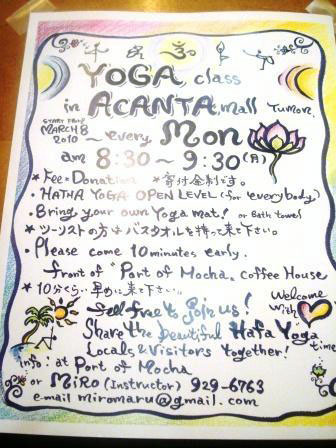 ॐ
YOGA class
in ACANTA mall Tumon.
START FROM
MARCH 8
2010 ~ every Mon
am 8:30 ~ 9:30 (月)
* Fee = Donation *寄付金制です。
・HATHA YOGA OPEN LEVEL (for everybody)
・Bring your own Yoga mat! or Bath towel
*ツーリストの方はバスタオルを持って来て下さい。
・Please come 10 minutes early.
front of "Port of Mocha" coffee House
*10分くらい早めに来て下さい。
feel free to join us!
Welcome
with
Share the beautiful Hafa Yoga time
Locals & Visitors together!
info: at Port of Mocha
or MiRo (Instructor) 929-6763
e-mail miromaru@gmail.com